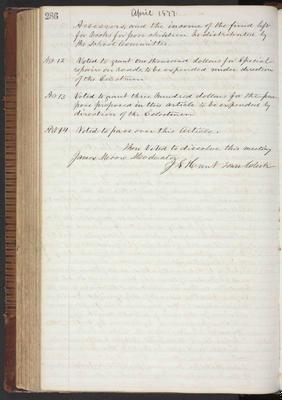 286
April 1877.
Assessors, and the income of the fund left
for books for poor children be distributed by
the School Committee
Art 12 Voted to grant one thousand dollars for special
repairs on roads to be expended under direction
of the Selectmen
Art 13 Voted to grant three hundred dollars for the pur
pose proposed in this article to be expended by
direction of the Selectmen
Art 14 Voted to pass over this Article.
Then Voted to dissolve this meeting
James Moore Moderator
J S Hunt Town Clerk